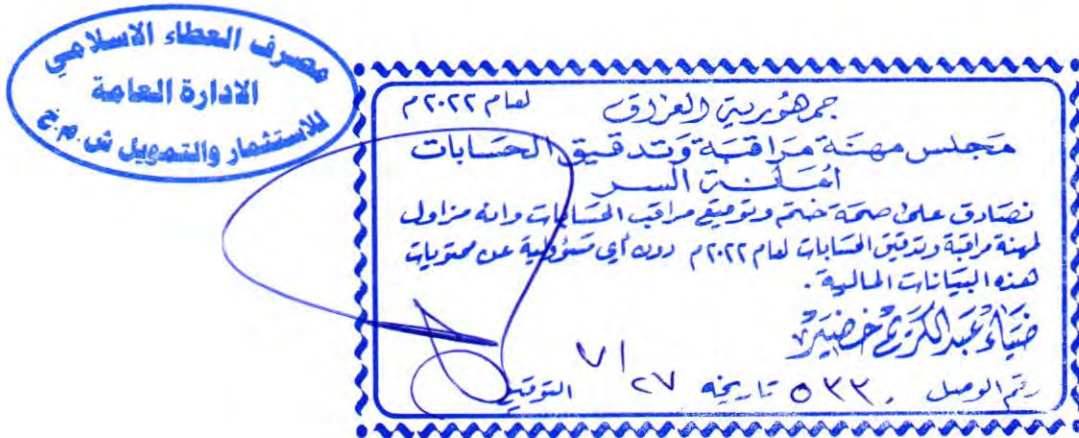 مصرف العطاء الاسلامي
الادارة العامة
للاستثمار والتمويل ش.م.خ
جمهورية العراق لعام ٢٠٢٢م
مجلس مهنة مراقبة وتدقيق الحسابات
امانة السر
نصادق على صحة ختم وتوقيع مراقب الحسابات وانه مزاول
لمهنة مراقبة وتدقيق الحسابات لعام ٢٠٢٢م دون أي مسؤولية عن محتويات
هذه البيانات المالية .
ضياء عبدالكريم خضير
رقم الوصل ٥٣٣٠ تاريخه ٢٧/٧ التوقيع